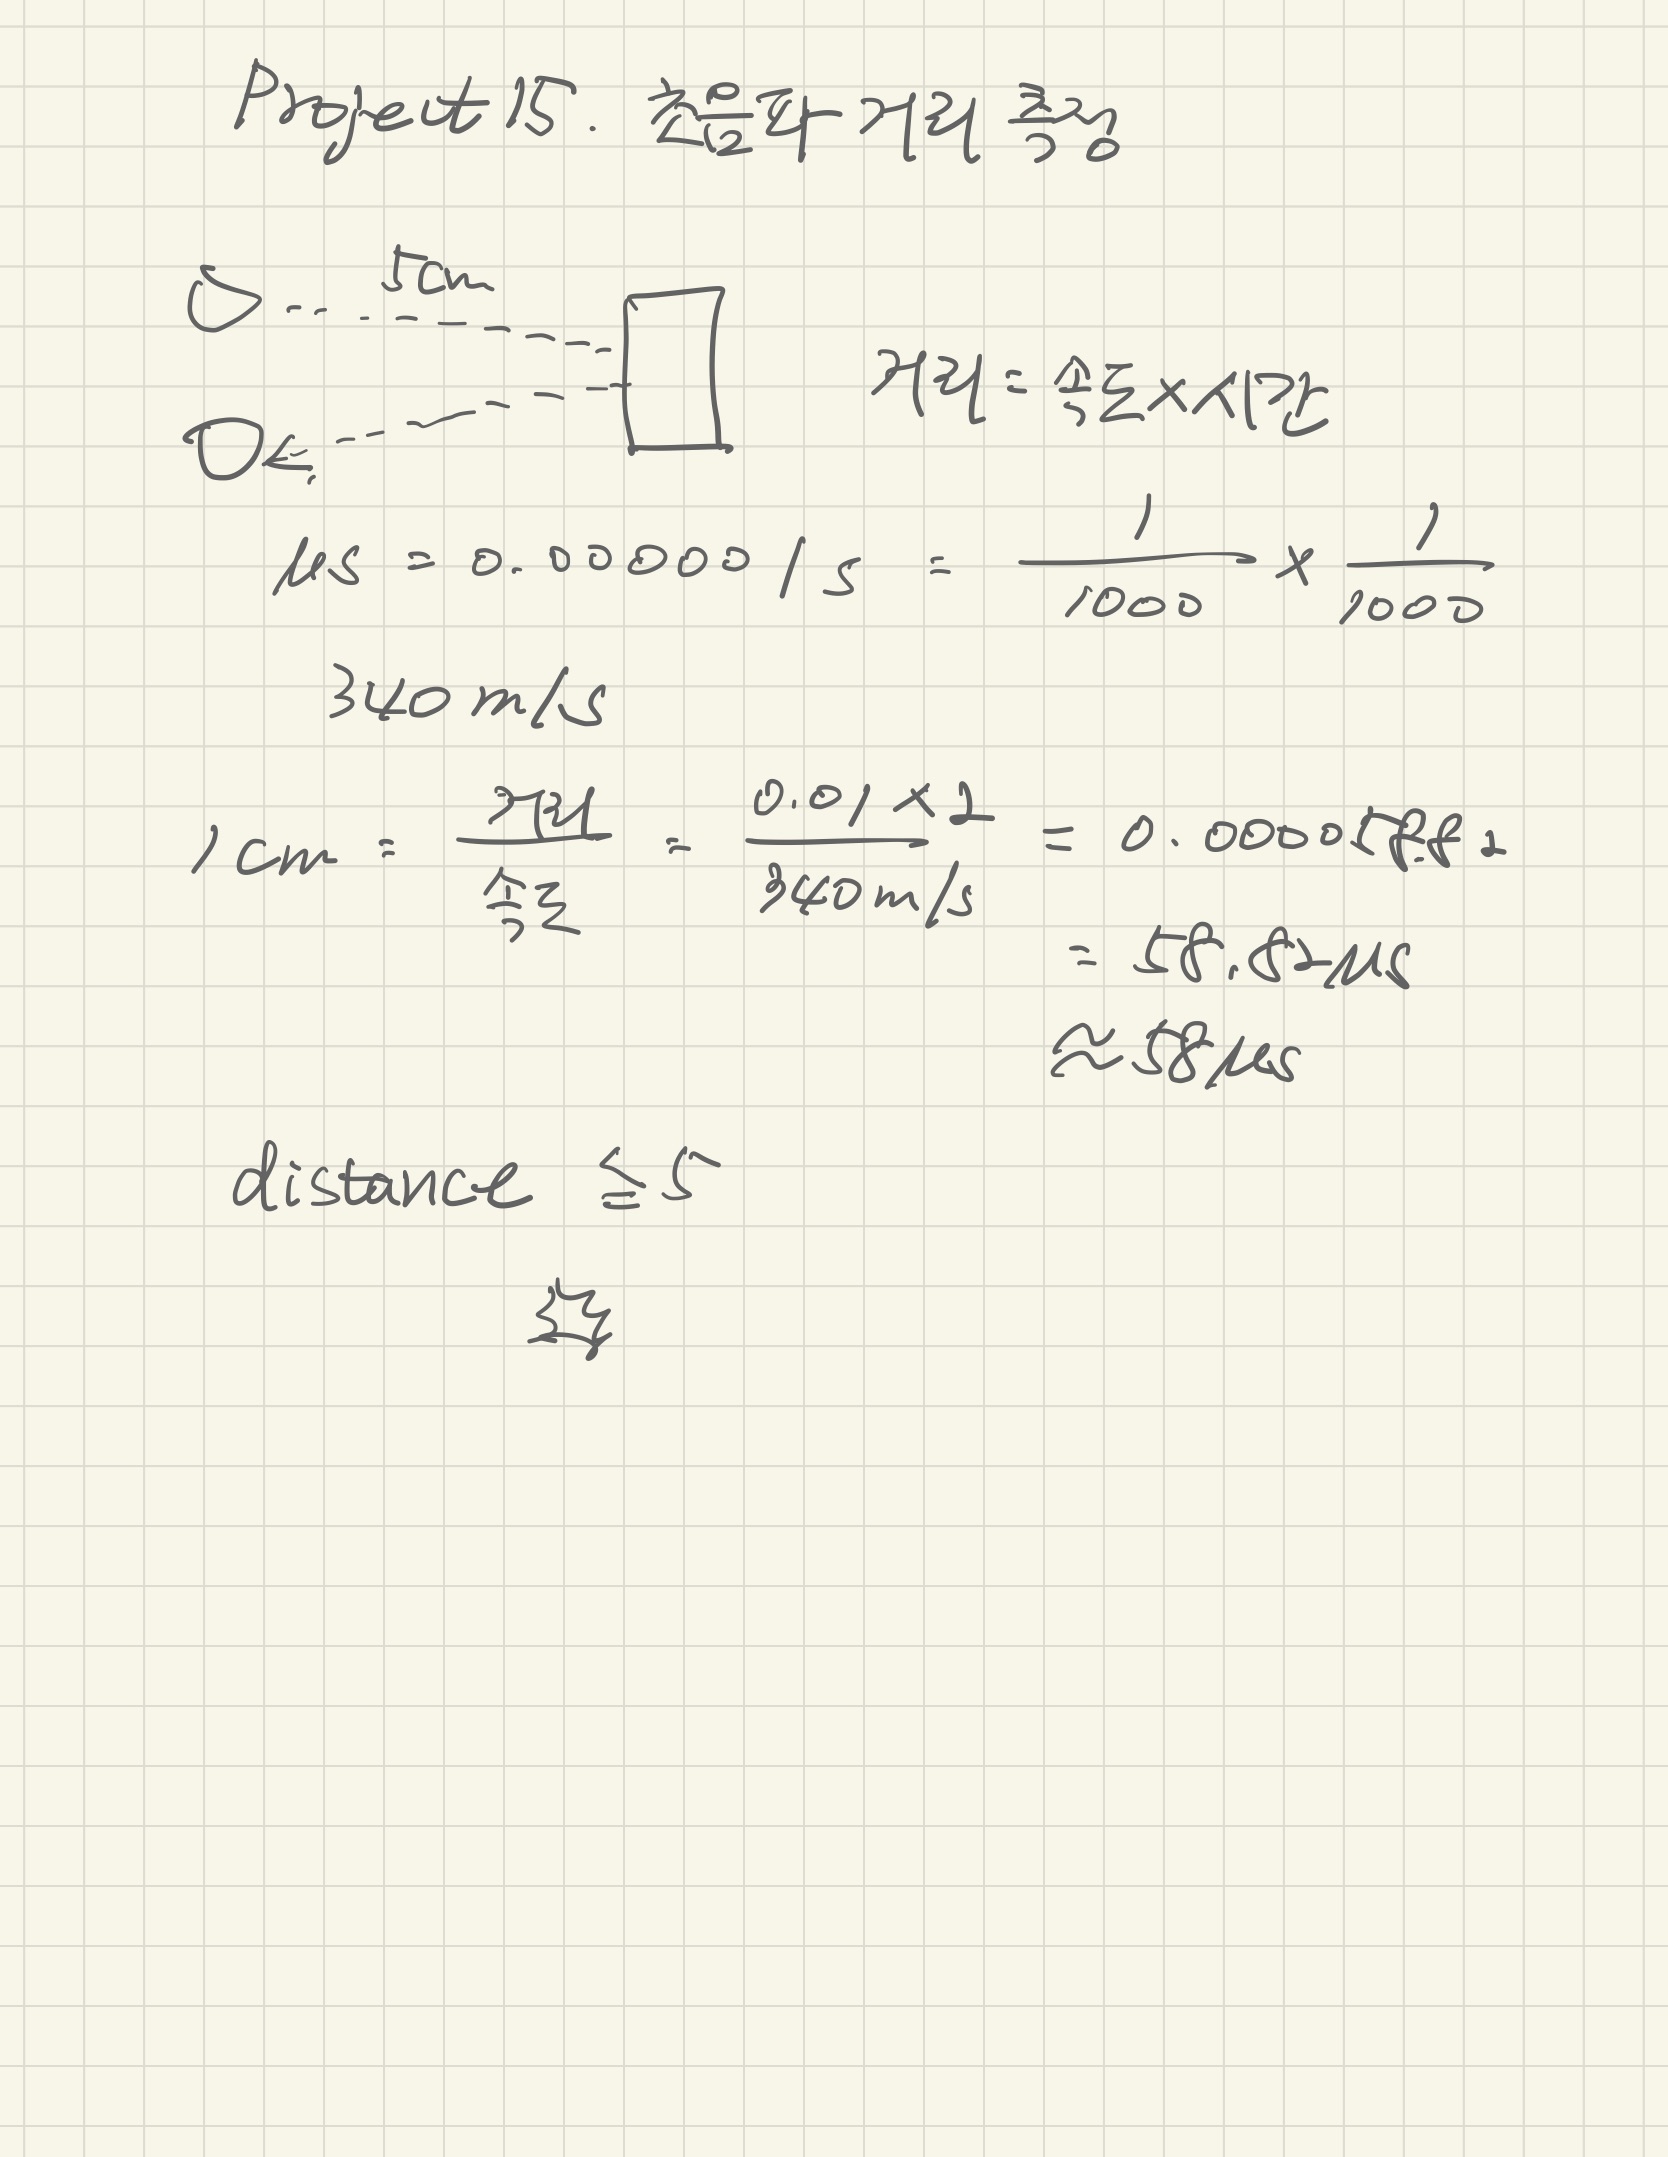 Project 15. 초음파 거리 측정
5cm
거리 = 속도 × 시간
μs = 0.000001s = 1/1000 × 1/1000
340 m/s
1cm = 거리/속도 = 0.01 × 2/340m/s = 0.000058.82
= 58.82μs
≈ 58μs
distance ≤ 5